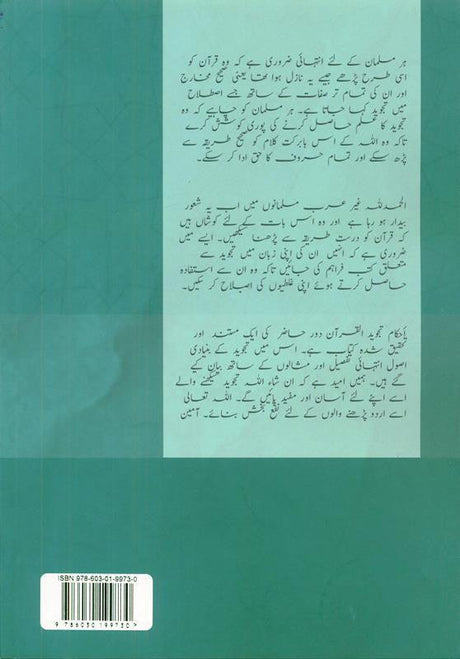 ہر مسلمان کے لئے انتہائی ضروری ہے کہ وہ قرآن کو
اسی طرح پڑھے جیسے یہ نازل ہوا تھا یعنی صحیح مخارج
اور ان کی تمام تر صفات کے ساتھ جسے اصطلاح
میں تجوید کہا جاتا ہے۔ ہر مسلمان کو چاہیے کہ وہ
تجوید کا علم حاصل کرنے کی پوری کوشش کرے
تاکہ وہ اللہ کے اس بابرکت کلام کو صحیح طریقہ سے
پڑھ سکے اور تمام حروف کا حق ادا کر سکے۔
الحمدللہ غیر عرب مسلمانوں میں اب یہ شعور
بیدار ہو رہا ہے اور وہ اس بات کے لئے کوشاں ہیں
کہ قرآن کو درست طریقہ سے پڑھنا سیکھیں۔ ایسے میں
ضروری ہے کہ انہیں ان کی اپنی زبان میں تجوید سے
متعلق کتب فراہم کی جائیں تاکہ وہ ان سے استفادہ
حاصل کرتے ہوئے اپنی غلطیوں کی اصلاح کر سکیں۔
أحکام تجوید القرآن دور حاضر کی ایک مستند اور
تحقیق شدہ کتاب ہے۔ اس میں تجوید کے بنیادی
اصول انتہائی تفصیل اور مثالوں کے ساتھ بیان کیے
گئے ہیں۔ ہمیں امید ہے کہ ان شاء اللہ تجوید سیکھنے والے
اسے اپنے لئے آسان اور مفید پائیں گے۔ اللہ تعالی
اسے اردو پڑھنے والوں کے لئے نفع بخش بنائے۔ آمین
ISBN 978-603-01-9973-0
9 786030 199730 >